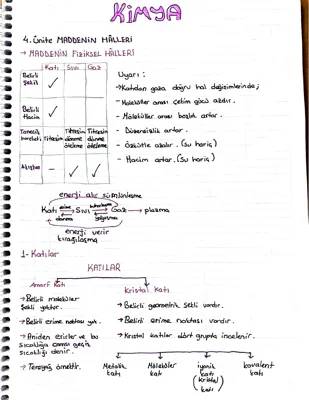 KİMYA
4. Ünite MADDENİN HÂLLERİ
→ MADDENİN FİZİKSEL HÂLLERİ
Katı Sıvı Gaz
Belirli Şekil ✓ - -
Belirli Hacim ✓ ✓ -
Tanecik hareketi Titreşim Titreşim dönme öteleme Titreşim dönme öteleme
Akışkan - ✓ ✓
Uyarı :
• Katıdan gaza doğru hal değişimlerinde;
- Moleküller arası çekim gücü azalır.
- Moleküller arası boşluk artar.
- Düzensizlik artar.
- Özkütle azalır. (Su hariç)
- Hacim artar. (Su hariç)
enerji alır süblimleşme
Katı erime Sıvı buharlaşma Gaz → plazma
donma yoğuşma
enerji verir
kırağılaşma
1- Katılar
KATILAR
Amorf katı
→ Belirli moleküler şekli yoktur.
→ Belirli erime noktası yok.
→ Aniden erirler ve bu sıcaklığa camsı geçiş sıcaklığı denir.
→ Tereyağ örnektir.
Kristal katı
→ Belirli geometrik şekli vardır.
→ Belirli erime noktası vardır.
→ Kristal katılar dört grupta incelenir.
Metalik katı
Moleküler katı
iyonik katı (kristal katı)
kovalent katı